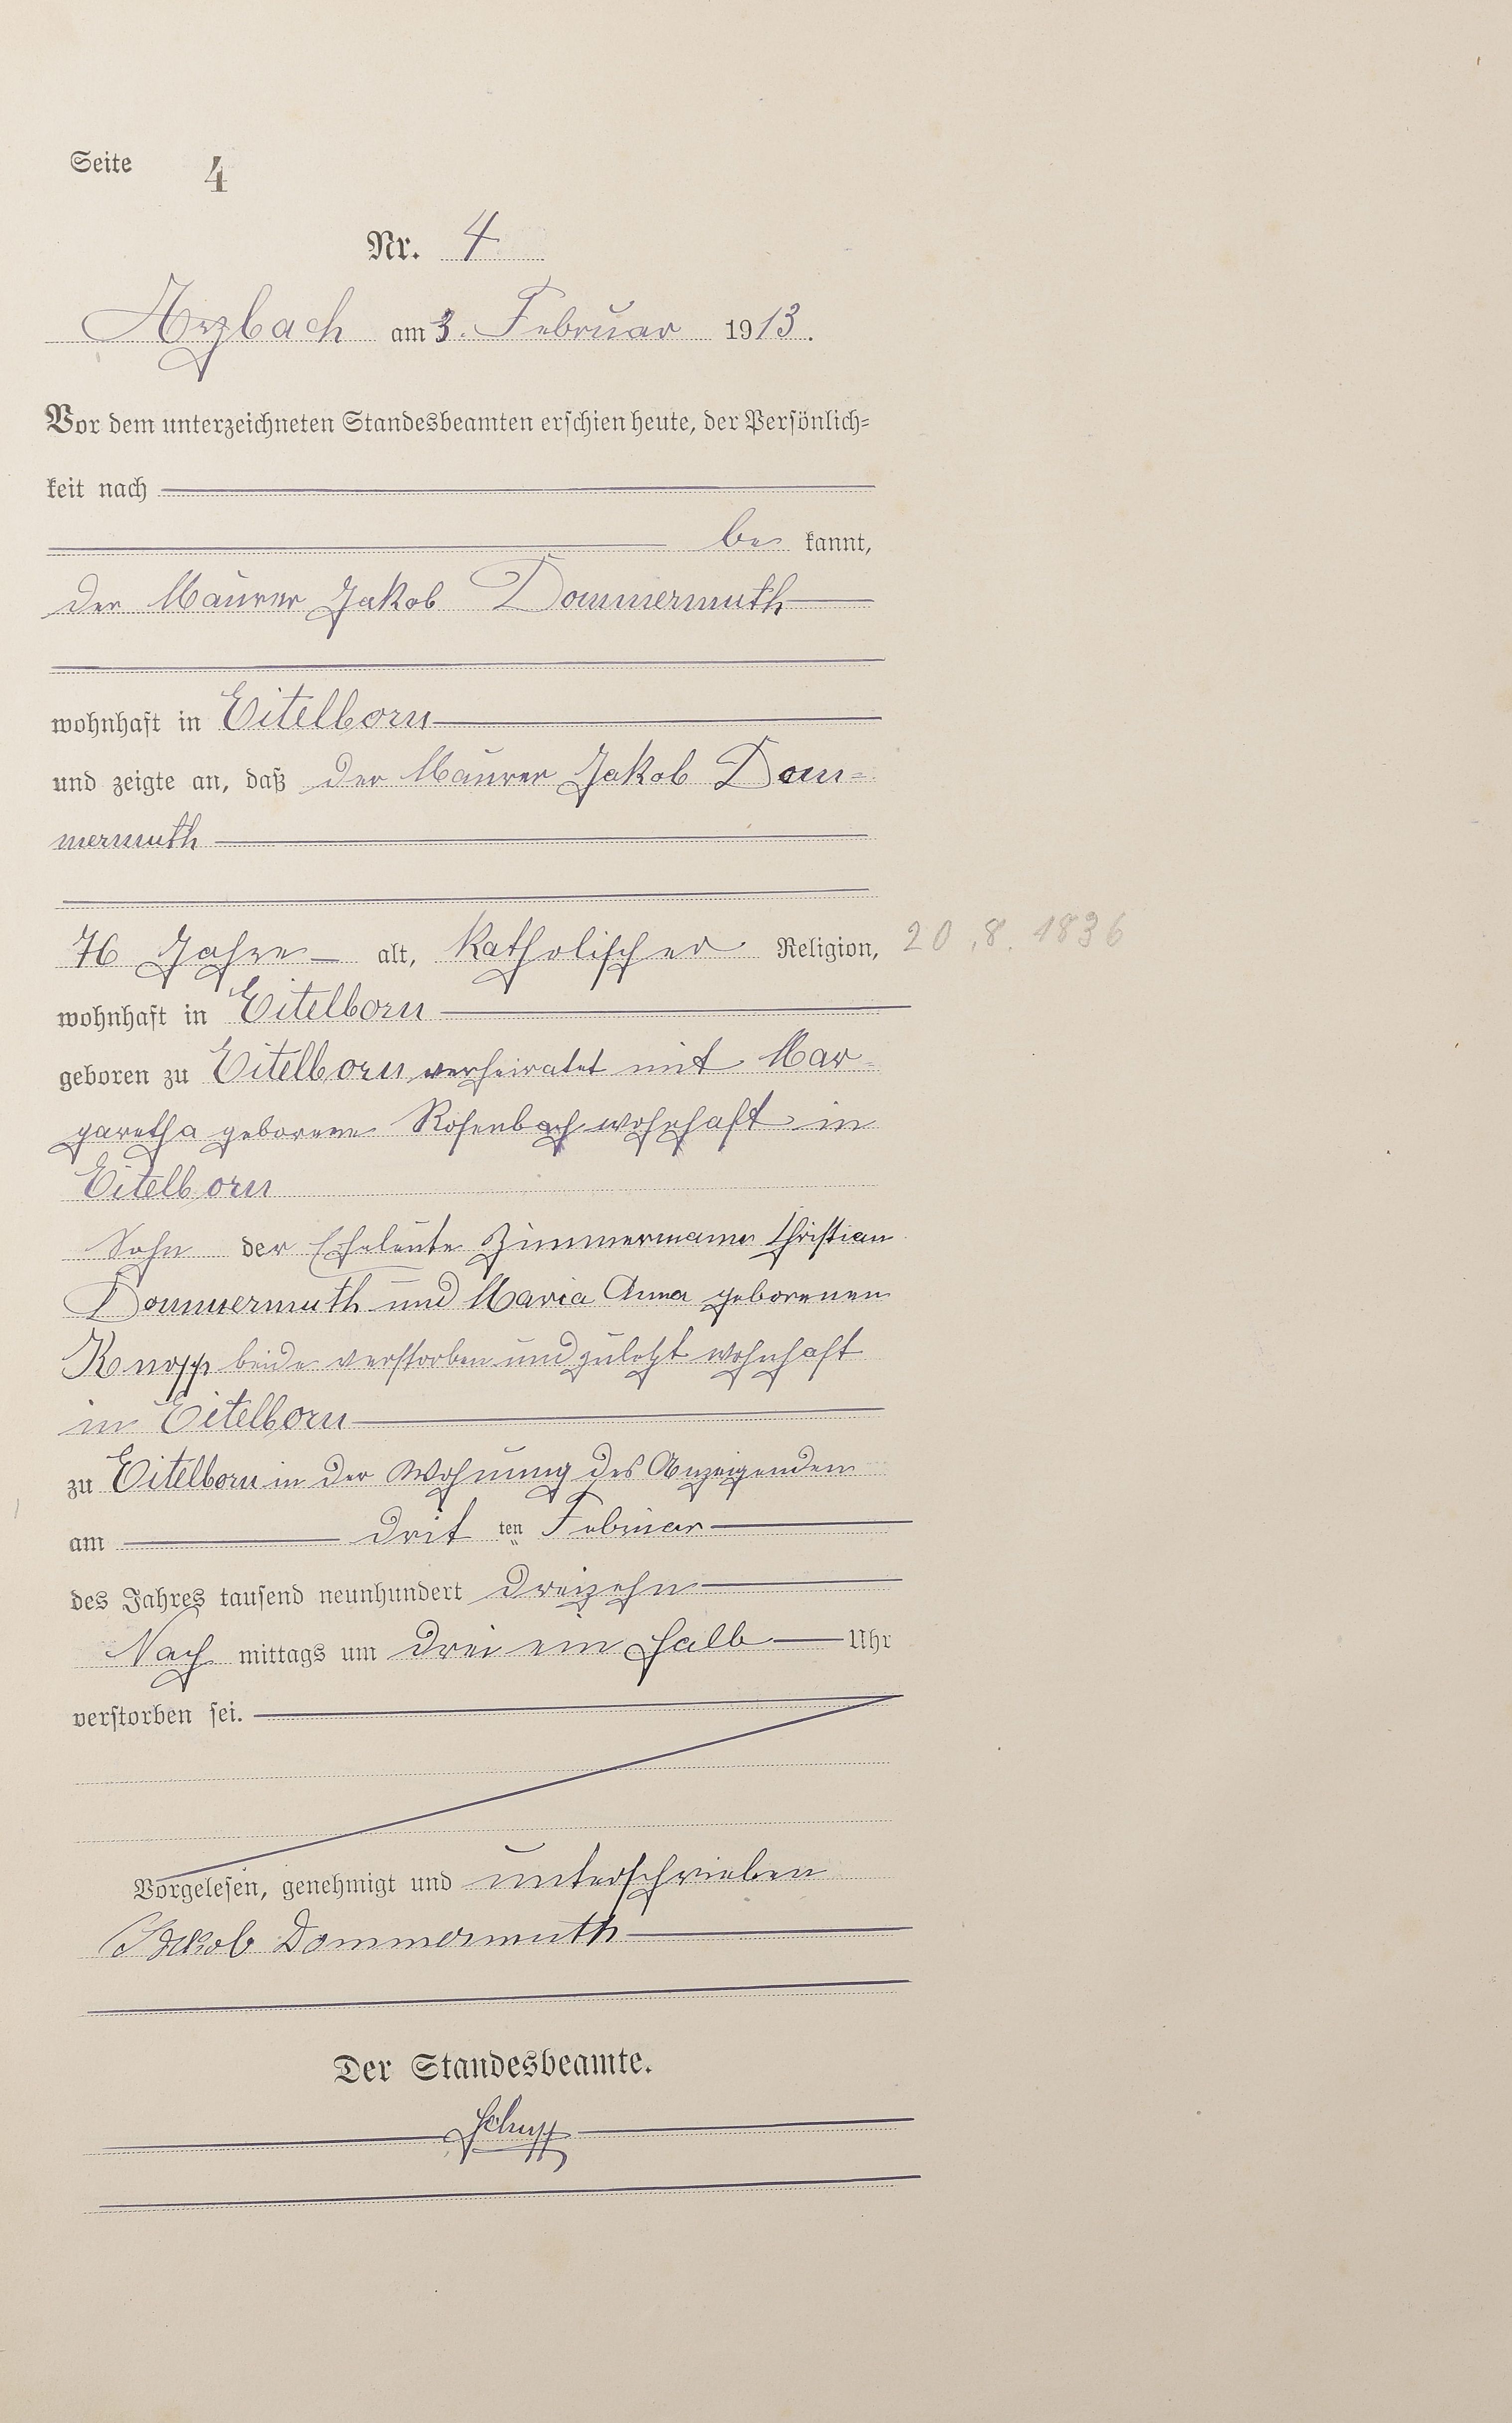 Seite 4
Nr. 4
Arzbach am 3. Februar 1913.
Vor dem unterzeichneten Standesbeamten erschien heute, der Persönlich=
keit nach
be kannt,
der Maurer Jakob Dommermuth
wohnhaft in Eitelborn
und zeigte an, daß der Maurer Jakob Dom=
mermuth
76 Jahre alt, katholischer Religion, 20.8.1836
wohnhaft in Eitelborn
geboren zu Eitelborn verheiratet mit Mar=
garetha geborene Rosenbach wohnhaft in
Eitelborn
Sohn der Eheleute Zimmermann Christian
Dommermuth und Maria Anna geborenen
Knopp beide verstorben und zuletzt wohnhaft
in Eitelborn
zu Eitelborn in der Wohnung des Anzeigenden
am drit ten Februar
des Jahres tausend neunhundert dreizehn
Nach mittags um drei ein halb Uhr
verstorben sei.
Vorgelesen, genehmigt und unterschrieben
Jakob Dommermuth
Der Standesbeamte.
Schupp